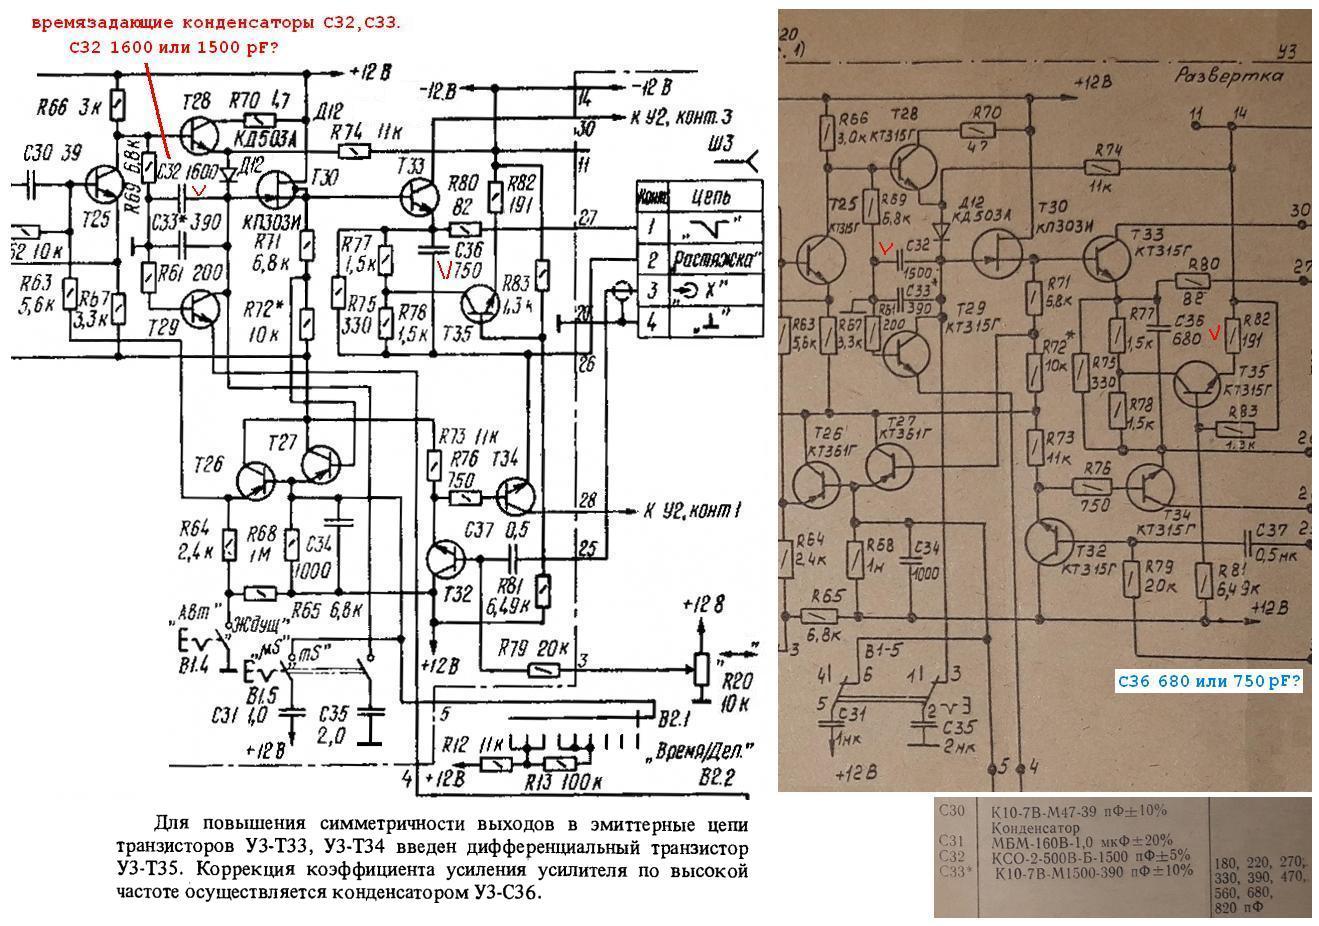 времязадающие конденсаторы С32,С33.
С32 1600 или 1500 pF?
+12 В
R66 3к
Т28
R70 47
Д12
КД503А
R74 11к
-12В
-12 В
14
30
К У2, конт. 3
11
Ш3
С30 39
R69 6,8к
С32 1600
Д12
Т30
Т33
R80
82
R82
191
Конт.
Цепь
Т25
С33* 390
КП303И
27
1
62 10к
R71
6,8к
R77
1,5к
С36
750
R83
1,3к
2
"Растяжка"
R63
5,6к
R67
3,3к
R61
200
R72*
10к
R75
330
R78
1,5к
Т35
3
"⊖ X"
20
4
"⊥"
Т29
26
Т26
Т27
R73 11к
R76
750
Т34
28
К У2, конт 1
R64
2,4к
R68
1М
С34
1000
С37
0,5
25
R65
6,8к
Т32
R81
6,49к
+12 В
"Авт"
"Ждущ"
В1.4
"μS"
"mS"
В1.5
+12В
R79 20к
3
R20
10к
С31 1,0
С35
2,0
+12 В
5
В2.1
R12 11к
"Время/Дел."
+12В
R13 100к
В2.2
4
Для повышения симметричности выходов в эмиттерные цепи
транзисторов У3-Т33, У3-Т34 введен дифференциальный транзистор
У3-Т35. Коррекция коэффициента усиления усилителя по высокой
частоте осуществляется конденсатором У3-С36.
20
с. 1)
У3
+12В
Развертка
R66
3,0к
Т28
КТ315Г
R70
47
11
14
R74
11к
Т25
КТ315Г
R69
6,8к
Д12
КД503А
Т30
КП303И
30
С32
1500
Т33
КТ315Г
R80
82
27
С33*
390
Т29
КТ315Г
R71
6,8к
R77
1,5к
С36
680
R82
191
R63
5,6к
R67
3,3к
R61
200
R72*
10к
R75
330
Т35
КТ315Г
R78
1,5к
R83
1,3к
Т26
КТ361Г
Т27
КТ361Г
R73
11к
R76
750
Т34
КТ315Г
R64
2,4к
R68
1м
С34
1000
Т32
КТ315Г
R79
20к
С37
0,5мк
R81
6,49к
R65
6,8к
+12В
3
В1-5
4
6
1
3
5
2
С31
1мк
С35
2мк
+12В
5
4
С36 680 или 750 pF?
С30 К10-7В-М47-39 пФ±10%
Конденсатор
С31 МБМ-160В-1,0 мкФ±20%
С32 КСО-2-500В-Б-1500 пФ±5%
С33* К10-7В-М1500-390 пФ±10%
180, 220, 270,
330, 390, 470,
560, 680,
820 пФ